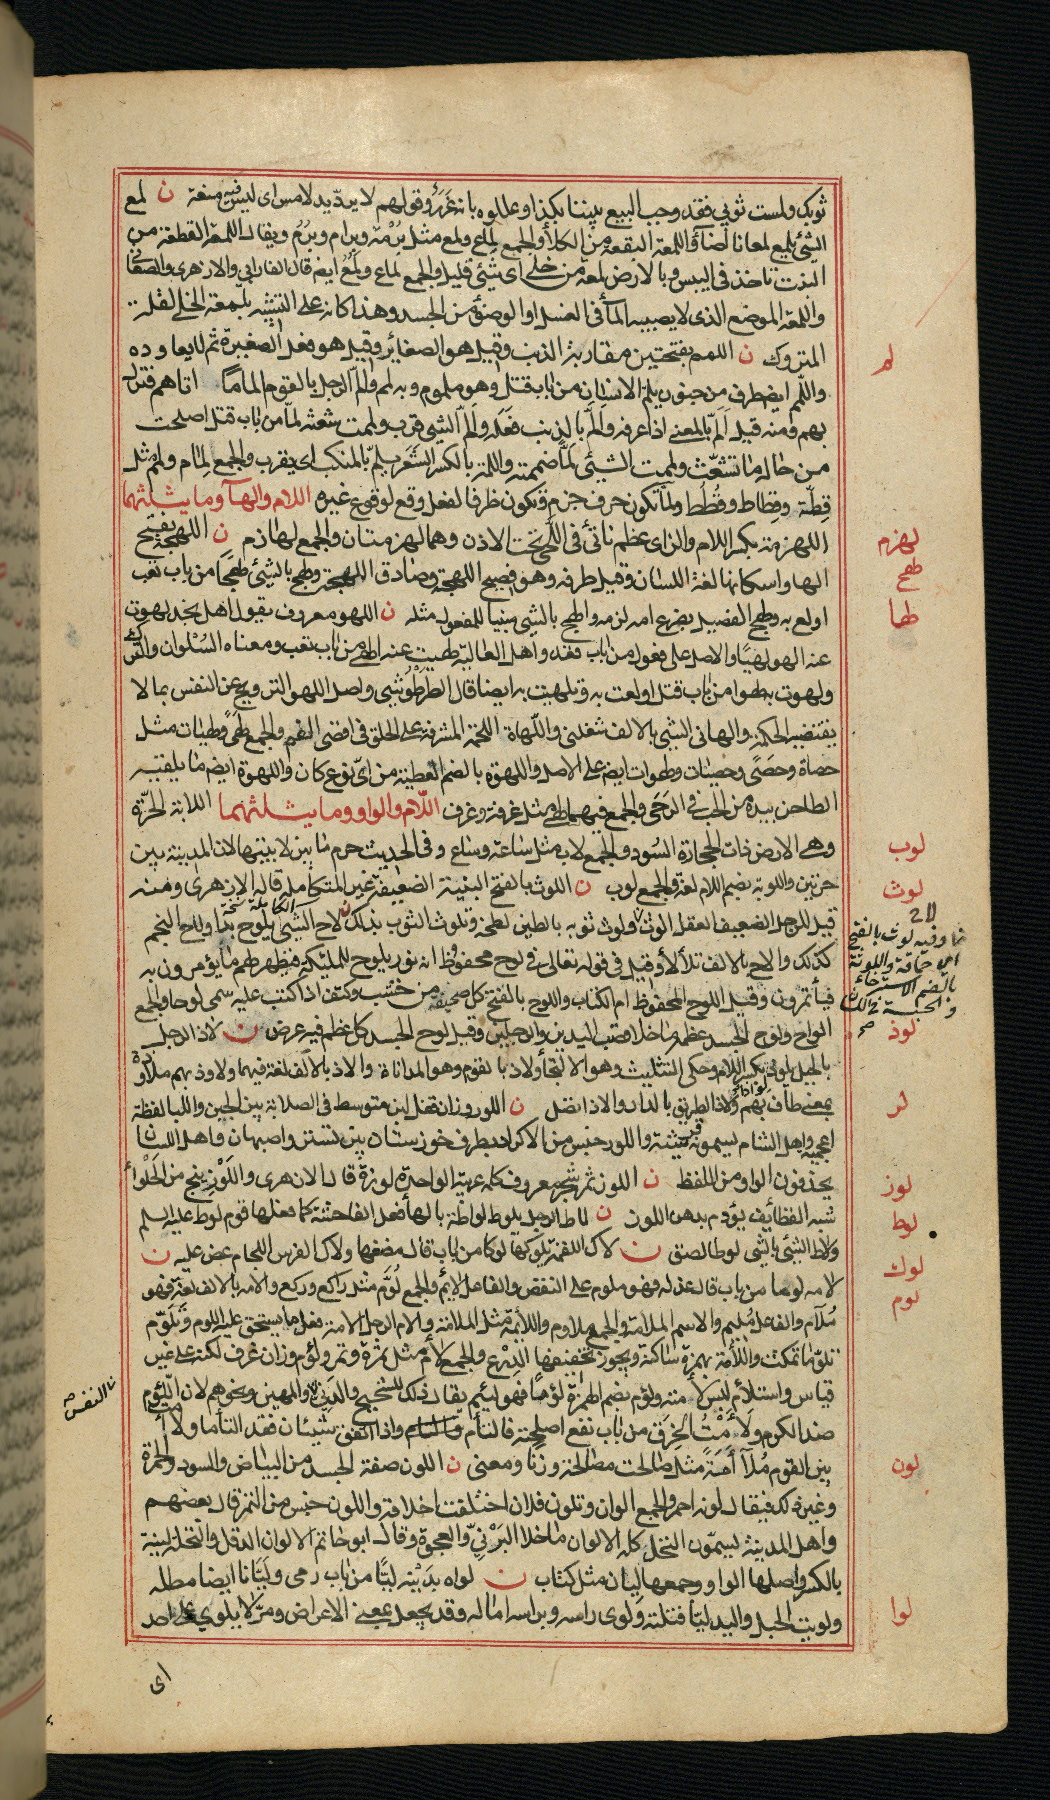 ثوبك ولست ثوبي فقد وجب البيع بيننا بكذا وعللوه بانه غرر وقولهم لا يرد يد لامس اى ليس فيه منعة ن لمع
الشئ يلمع لمعانا أضآء واللمعة البقعة من الكلأ والجمع لماع ولمع مثل برمة وبرام وبرم ويقال اللمعة القطعة من
النبت تاخذ فى اليبس وبالارض لمعة من خلى اى شئ قليل والجمع لماع ولمع ايض قال الفارابى والازهرى والصغانى
واللمعة الموضع الذى لا يصيبه المآء فى الغسل او الوضوء من الجسد وهذا كانه على التشبيه بلمعة الخلى لقلة
المتروك ن اللمم بفتحتين مقاربة الذنب وقيل هو الصغائر وقيل هو فعل الصغيرة ثم لا يعاوده
واللمم ايض طرف من جنون يلم الانسان من باب قتل وهو ملموم وبه لمم والم الرجل بالقوم الماما اتاهم فنزل
بهم ومنه قيل الم بالمعنى اذا عرفه والم بالذنب فعله والم الشئ قرب ولممت شعثه لما من باب قتل اصلحت
من حاله ما تشعث ولممت الشيئ لما ضممته واللمة بالكسر الشعر يلم بالمنكب اى يقرب والجمع لمام ولمم مثل
قطة وقطاط وقطط ولما تكون حرف جزم وتكون ظرفا لفعل وقع لوقوع غيره اللام والهآ وما يثلثهما
اللهزمة بكسر اللام والزاى عظم ناتئ فى اللحى تحت الاذن وهما لهزمتان والجمع لهازم ن اللهجة بفتح
الها واسكانها لغة اللسان وقيل طرفه وهو فصيح اللهجة وصادق اللهجة ولهج بالشيئ لهجا من باب تعب
اولع به ولهج الفصيل بضرع امه لزمه والهج بالشئ مبنيا للمفعول مثله ن اللهو معروف يقول اهل نجد لهوت
عنه الهو لهيا والاصل على فعول من باب قعد واهل العالية لهيت عنه الهى من باب تعب ومعناه السلوان والترك
ولهوت به لهوا من باب قتل اولعت به وتلهيت به ايضا قال الطرطوشى واصل اللهو الترويح عن النفس بما لا
يقتضيه الحكمة والهانى الشئ بالالف شغلنى واللهاة اللحمة المشرفة على الحلق فى اقصى الفم والجمع لهى ولهيات مثل
حصاة وحصى وحصيات ولهوات ايض على الاصل واللهوة بالضم العطية من اى نوع كان واللهوة ايض ما يلقيه
الطاحن بيده من الحب فى الرحى والجمع فيهما لهى مثل غرفة وغرف اللام والواو وما يثلثهما اللابة الحرة
وهى الارض ذات الحجارة السود والجمع لاب مثل ساعة وساع وفى الحديث حرم ما بين لابتيها لان المدينة بين
حرتين واللوبة بضم اللام لغة والجمع لوب ن اللوث بالفتح البنية الضعيفة غير المتكاملة قاله الازهرى ومنه
قيل للرجل الضعيف العقل الوث ولوث ثوبه بالطين لطخه وتلوث الثوب بذلك ن لاح الشئ يلوح بدا ولاح النجم
كذلك والاح بالالف تلألأ وقيل فى قوله تعالى فى لوح محفوظ انه نور يلوح للملئكة فيظهر لهم ما يؤمرون به
فيأتمرون وقيل اللوح المحفوظ ام الكتاب واللوح بالفتح كل صحيفة من خشب وكتف اذا كتب عليه سمى لوحا والجمع
الواح ولوح الجسد عظمه ما خلا قصب اليدين والرجلين وقيل لوح الجسد كل عظم فيه عرض ن لاذ الرجل
بالجبل يلوذ بكسر اللام وحكى التثليث وهو الالتجأ ولاذ بالقوم وهو المداناة والاذ بالالف لغة فيهما ولاوذ بهم ملاوذة
بمعنى طاف بهم ولاذ الطريق بالدار والاذ اتصل ن اللور وزان قفل لبن متوسط فى الصلابة بين الجبن واللبا لفظة
اعجمية واهل الشام يسمونه قريشة واللور جنس من الاكراد بطرف خوزستان بين تستر واصبهان واهل اللسان
يحذفون الواو من اللفظ ن اللوز ثمر شجر معروف كلمة عربية الواحدة لوزة قال الازهرى واللوزينج من الحلوا
شبه القطائف يؤدم بدهن اللوز ن لاط الرجل يلوط لواطة بالهآ فعل الفاحشة كما فعلها قوم لوط عليه السلم
ولاط الشئ بالشى لوطا لصق ن لاك اللقمة يلوكها لوكا من باب قال مضغها ولاك الفرس اللجام عض عليه ن
لامه لوما من باب قال عذله فهو ملوم على النقض والفاعل لائم والجمع لوم مثل راكع وركع والامه بالالف لغة فهو
ملام والفاعل مليم والاسم الملامة والجمع ملاوم واللائمة مثل الملامة والام الرجل الامة فعل ما يستحق عليه اللوم وتلوم
تلوما تمكث واللأمة بهمزة ساكنة ويجوز تخفيفها الدرع والجمع لأم مثل تمرة وتمر ولؤم وزان غرف لكنه على غير
قياس واستلأم لبس لأمته ولؤم بضم الهمزة لؤما فهو لئيم يقال ذلك للشحيح والدنى والمهين ونحوهم لان اللؤم
ضد الكرم ولأمت الخرق من باب نفع اصلحته فالتأم واذا اتفق شيئان فقد التأما ولاأمت
بين القوم ملآأمة مثل صالحت مصالحة وزنا ومعنى ن اللون صفة الجسد من البياض والسود والحمرة
وغير ذلك فيقال لونه احمر والجمع الوان وتلون فلان اختلفت اخلاقه واللون جنس من التمر قال بعضهم
واهل المدينة يسمون النخل كله الالوان ما خلا البرنى والعجوة وقال ابو حاتم الالوان الدقل والنخلة لينة
بالكسر واصلها الواو وجمعها ليان مثل كتاب ن لواه بدينه ليا من باب رمى وليانا ايضا مطله
ولويت الحبل واليد ليا فتلته ولوى راسه وبراسه اماله وقد يجعل بمعنى الاعراض ومر لا يلوى على احد
اى
لم
لهزم
لهج
لها
لوب
لوث
وفيه لوث بالفتح
اى حماقة واللوثة
بالضم الاسترخاء
لوذ
لر
لوز
لوط
لوك
لوم
النقص
لون
لوا